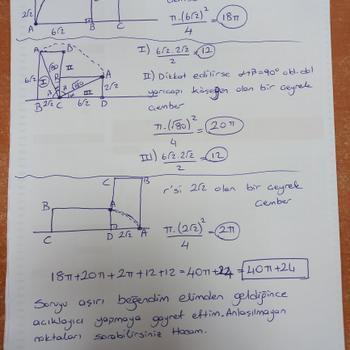 2√2
A 6√2 B C
π.(6√2)²/4 = 18π
A B
I) 6√2.2√2/2 = 12
6√2 I √80 II √80 A
III 2√2
B 2√2 C 6√2 D
II) Dikkat edilirse α+β=90° old. dol
yarıçapı köşegen olan bir çeyrek
çember
π.(√80)²/4 = 20π
III) 6√2.2√2/2 = 12
C B
r'si 2√2 olan bir çeyrek
çember
B A
C D 2√2 A
π.(2√2)²/4 = 2π
18π+20π+2π+12+12=40π+24 = 40π+24
Soruyu aşırı beğendim elimden geldiğince
açıklayıcı yapmaya gayret ettim. Anlaşılmayan
noktaları sorabilirsiniz Hocam.